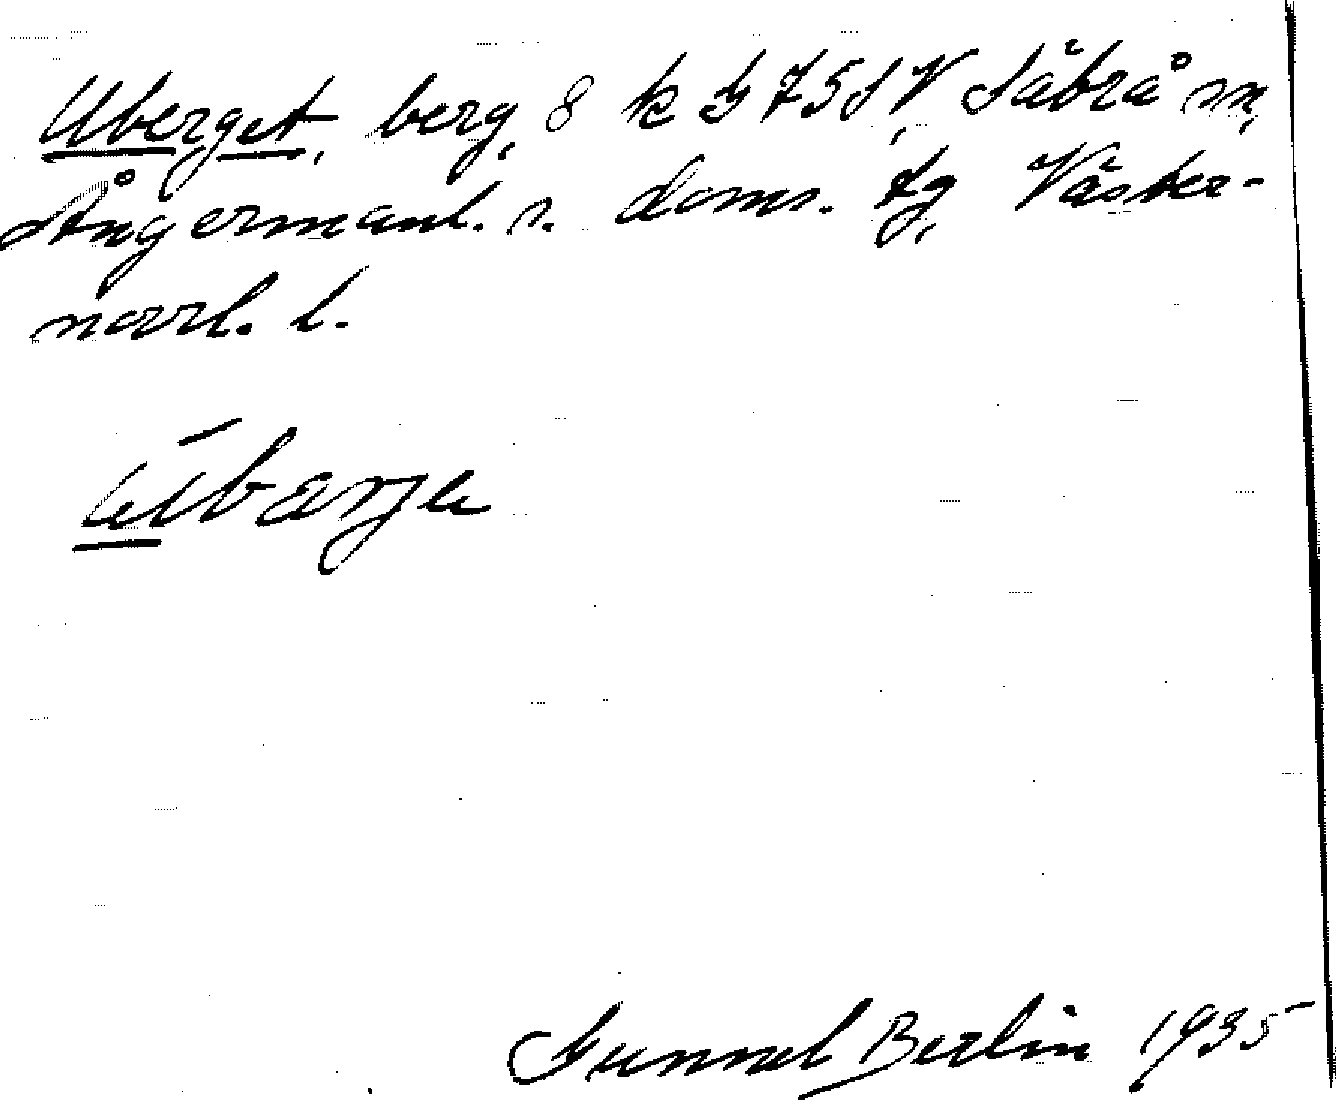 Uberget, berg, 8 k G 75 SV, Säbrå sn,
Ångermanl. s. doms. tg, Väster-
norrl. l.
ūbarje
Gunnel Berlin 1935